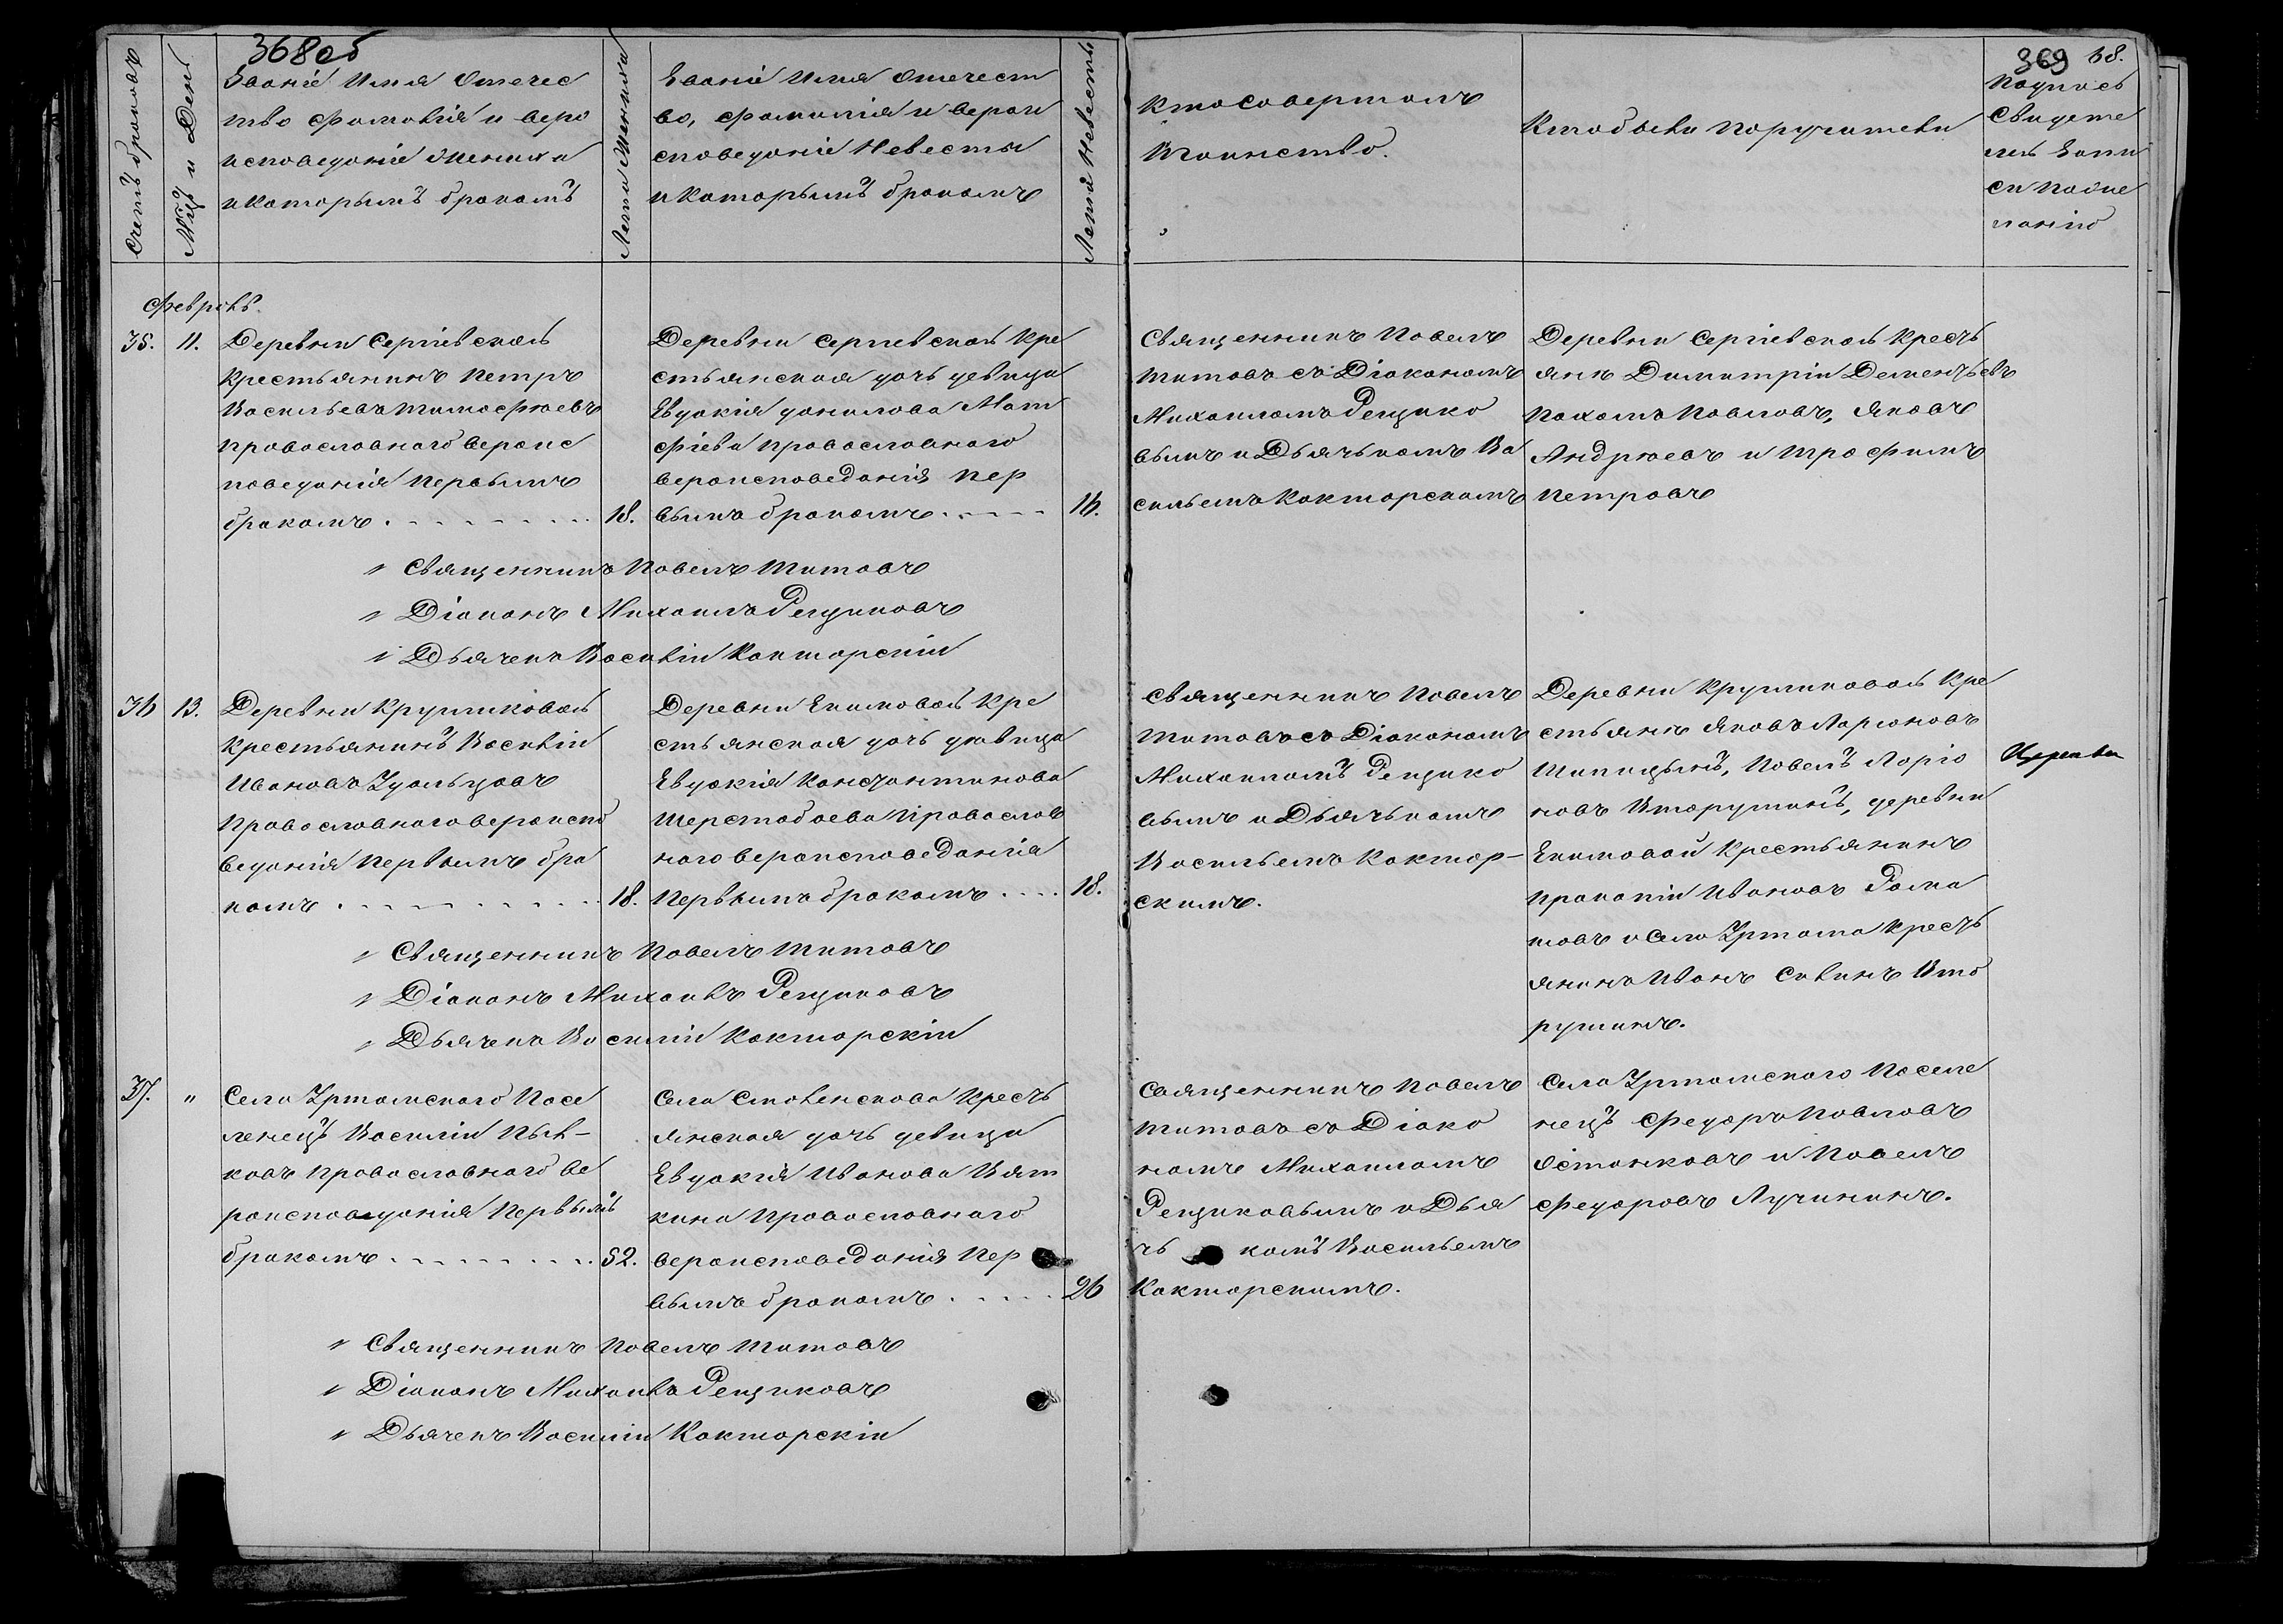 368об
369 68.
Счетъ браковъ
Мцъ и День
Званіе Имя Отечес
тво Фамилія и веро
исповеданіе Жениха
и которымъ бракомъ
Лета Жениха
Званіе Имя Отечест
во, Фамилія и верои
споведаніе Невесты
и которымъ бракомъ
Лета Невесты
Кто Совершалъ
Таинство.
Кто были поручители
Подпись
Свидете
лей Запи
си по же
ланію
Февраль.
35. 11.
Деревни Сергіевской
Крестьянинъ Петръ
Васильевъ Тимофеевъ
Православного вероис
поведанія Первымъ
бракомъ 18.
Деревни Сергіевской Кре
стьянская дочь девица
Евдокія Данилова Мат
фіева Православного
вероисповеданія Пер
вымъ бракомъ 16.
Священникъ Павелъ
Титовъ съ Діакономъ
Михаиломъ Рещико
вымъ и Дьячькомъ Ва
сильемъ Кокшарскимъ
Деревни Сергіевской Кресть
янъ Димитрій Дементьевъ
Пахомъ Павловъ, Яковъ
Андреевъ и Трофимъ
Петровъ
Священникъ Павелъ Титовъ
Діаконъ Михаилъ Рещиковъ
Дьячекъ Василій Кокшарскій
36 13.
Деревни Кругликовой
Крестьянинъ Василій
Ивановъ Удальцовъ
Православного вероиспо
веданія Первымъ бра
комъ 18.
Деревни Екимовой Кре
стьянская дочь девица
Евдокія Константинова
Шерстобоева Православ
ного вероисповеданія
Первымъ бракомъ 18.
Священникъ Павелъ
Титовъ съ Діакономъ
Михаиломъ Рещико
вымъ и Дьячькомъ
Васильемъ Кокшар-
скимъ.
Деревни Кругликовой Кре
стьянъ Яковъ Ларіоновъ
Шипицынъ, Павелъ Ларіо
новъ Вторушинъ, деревни
Екимовой Крестьянинъ
Прокопій Ивановъ Рома
шовъ и Села Уртама Кресть
янинъ Иванъ Савинъ Вто
рушинъ.
Священникъ Павелъ Титовъ
Діаконъ Михаилъ Рещиковъ
Дьячекъ Василій Кокшарскій
37. "
Села Уртамского Посе
ленецъ Василій Пыл-
ковъ Православного ве
роисповеданія Первымъ
бракомъ 52.
Села Смоленскова Кресть
янская дочь девица
Евдокія Иванова Вят
кина Православного
вероисповеданія Пер
вымъ бракомъ 26
Священникъ Павелъ
Титовъ съ Діако
номъ Михаиломъ
Рещиковымъ и Дья
чь комъ Васильемъ
Кокшарскимъ.
Села Уртамского Поселе
нецъ Федоръ Павловъ
Останковъ и Павелъ
Федоровъ Лучининъ.
Священникъ Павелъ Титовъ
Діаконъ Михаилъ Рещиковъ
Дьячекъ Василій Кокшарскій